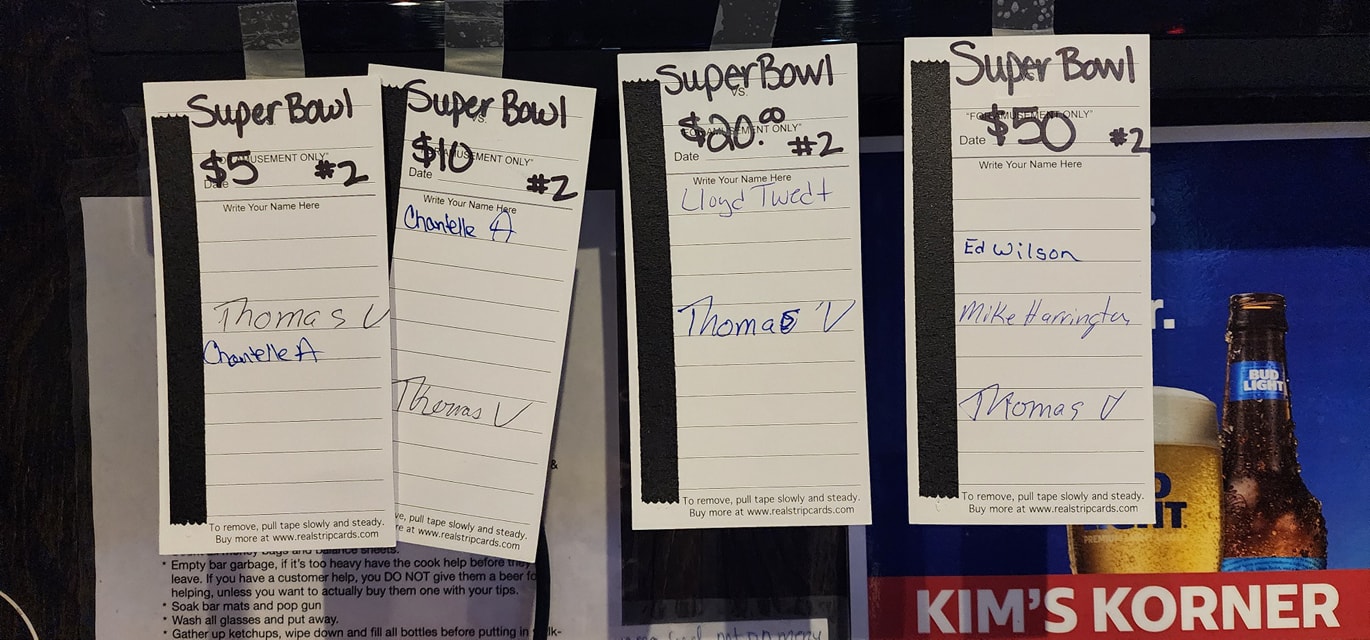 Super Bowl
VS.
$5
AMUSEMENT ONLY"
Date
#2
Write Your Name Here
Thomas V
Chantelle A
To remove, pull tape slowly and steady.
Buy more at www.realstripcards.com
Super Bowl
VS.
$10
AMUSEMENT ONLY"
Date
#2
Write Your Name Here
Chantelle A
Thomas V
ve, pull tape slowly and steady.
re at www.realstripcards.com
Super Bowl
VS.
$20.00
AMUSEMENT ONLY"
Date
#2
Write Your Name Here
Lloyd Twedt
Thomas V
To remove, pull tape slowly and steady.
Buy more at www.realstripcards.com
Super Bowl
"FOR AMUSEMENT ONLY"
Date $50 #2
Write Your Name Here
Ed Wilson
Mike Harrington
Thomas V
To remove, pull tape slowly and steady.
Buy more at www.realstripcards.com
&
money bags and balance sheets.
* Empty bar garbage, if it's too heavy have the cook help before they
leave. If you have a customer help, you DO NOT give them a beer fo
helping, unless you want to actually buy them one with your tips.
* Soak bar mats and pop gun
* Wash all glasses and put away.
* Gather up ketchups, wipe down and fill all bottles before putting in
not on menu
r.
BUD
LIGHT
KIM'S KORNER